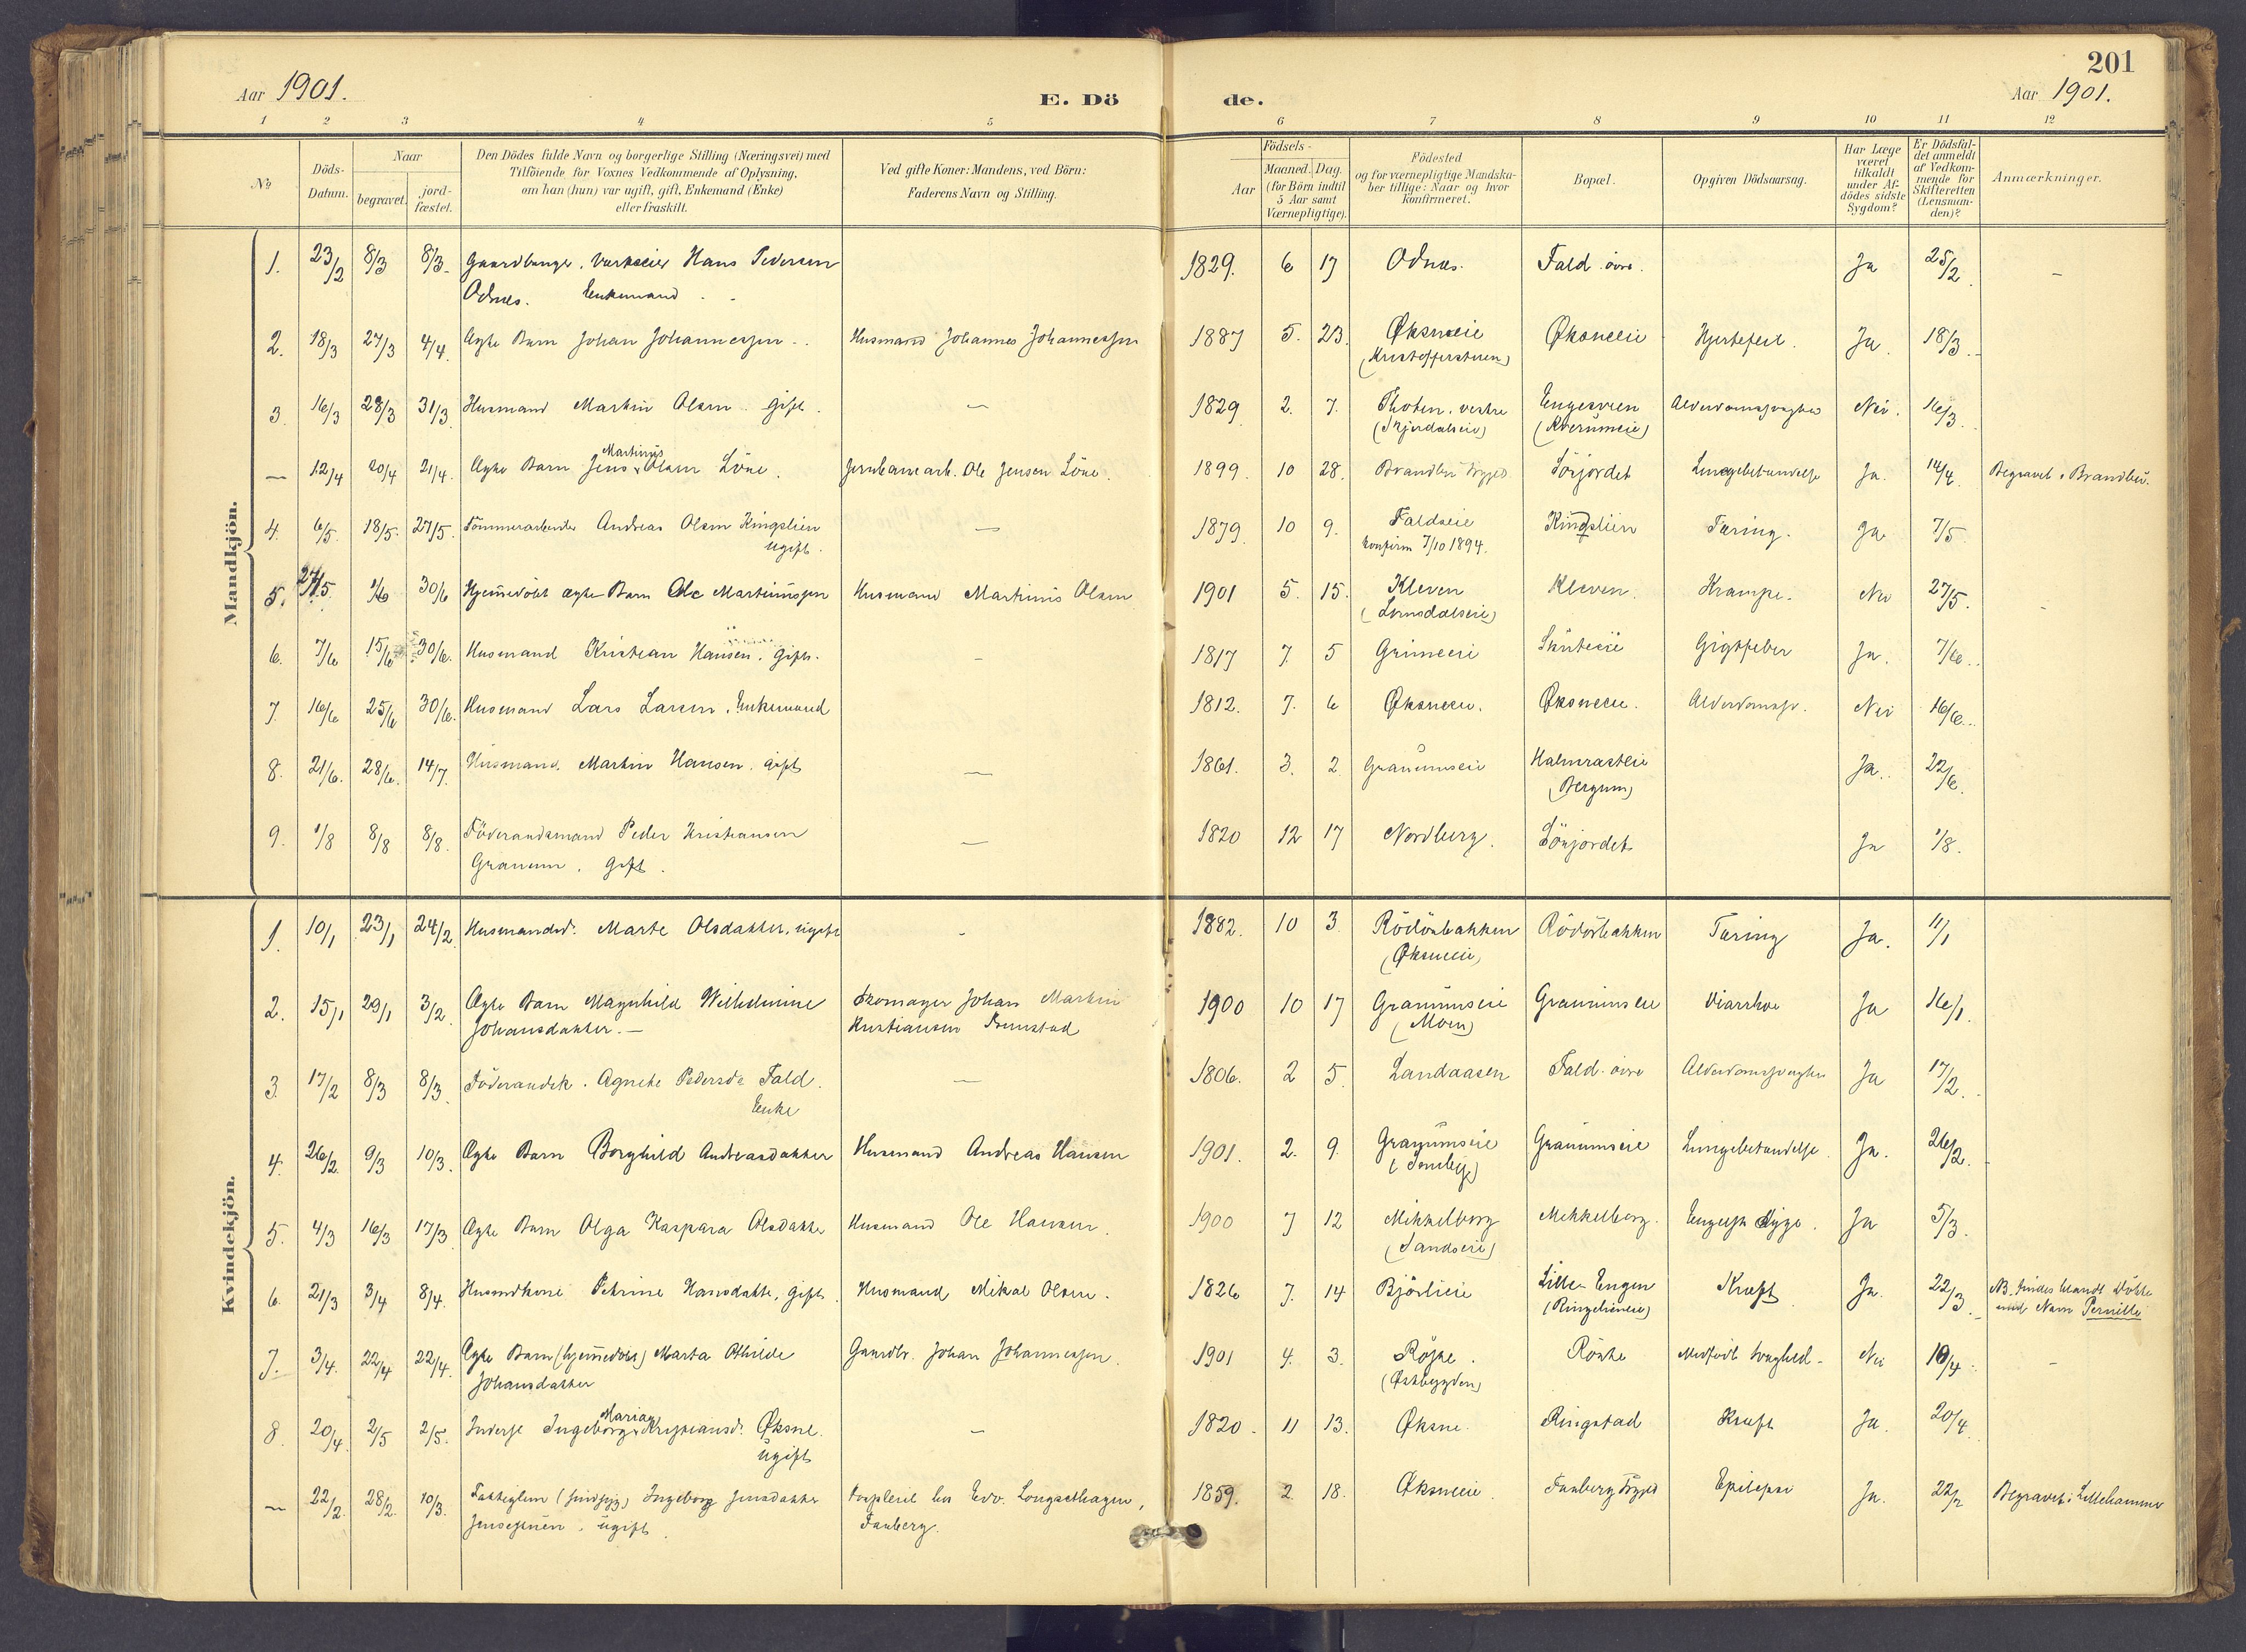 201
Aar 1901.
E. Dö
de.
Aar 1901.
1 2 3 4 5 6 7 8 9 10 11 12
No
Döds-
Datum.
Naar
begravet.
jord-
fæstet.
Den Dödes fulde Navn og borgerlige Stilling (Næringsvei) med
Tilföiende for Voxnes Vedkommende af Oplysning,
om han (hun) var ugift, gift, Enkemand (Enke)
eller fraskilt.
Ved gifte Koner: Mandens, ved Börn:
Faderens Navn og Stilling.
Födsels-
Aar
Maaned. Dag.
(for Börn indtil
5 Aar samt
Værnepligtige).
Födested
og for værnepligtige Mandska-
ber tillige: Naar og hvor
konfirmeret.
Bopæl.
Opgiven Dödsaarsag.
Har Læge
været
tilkaldt
under Af-
dödes sidste
Sygdom?
Er Dödsfal-
det anmeldt
af Vedkom-
mende for
Skifteretten
(Lensman-
den)?
Anmærkninger.
Mandkjön.
1. 23/2 8/3 8/3 Gaardbruger. Hans Pedersen 1829. 6 17 Odnes. Fald övre. Ja 25/2 -
Odnes. Enkemand.
2. 18/3 27/3 4/4. Ægte Barn Johan Johannessen Husmand Johannes Johannessen 1887 5. 23. Øksneeie Øksneeie Hjertefeil. Ja. 18/3
(Kristofferstuen)
3. 16/3 28/3 31/3 Husmand Martin Olsen. gift. — 1829 2. 7. Thoten. vestre Alderdomssvaghed Nei. 16/3
— 12/4 20/4 21/4. Ægte Barn Jens Martinus Olsen Löne. Jernbanearb. Ole Jensen Löne. 1899. 10 28. Brandbu Sörjordet Lungebetændelse Ja. 14/4 Begravet i Brandbu.
4. 6/5. 18/5. 27/5. Tömmerarbeider Andreas Olsen Kingslien — 1879. 10 9. Faldseie Kingslien Tæring. Ja 7/5
ugift. konfirm 7/10 1894.
5. 27/5 1/6 30/6 Hjemmedöbt ægte Barn Ole Martinussen Husmand Martinus Olsen 1901 5. 15. Kleven Kleven. Krampe. Nei 27/5.
6. 7/6 15/6 30/6. Husmand Kristian Hansen. gift. - 1817 7. 5 Gigtfeber Ja. 7/6.
7. 16/6 25/6 30/6. Husmand Lars Larsen. Enkemand 1812. 7. 6 Øksneeie. Øksneeie. Alderdomssv. Nei 16/6.
8. 21/6. 28/6. 14/7 Husmand. Martin Hansen. gift — 1861. 3. 2 Granumseie Halmrasteie Ja. 22/6.
(Bergum)
9. 1/8 8/8 8/8. Föderaadsmand Peder Kristiansen — 1820 12 17 Nordberg. Sörjordet Ja 1/8.
Granum. gift.
Kvindekjön.
1. 10/1 23/1 24/2. Husmandsd. Marte Olsdatter. ugift - 1882. 10 3. Rödösbakken Rödösbakken Tæring Ja. 11/1
(Øksneeie)
2. 15/1 29/1 3/2. Ægte Barn Magnhild Wilhelmine Skomager Johan Martin 1900 10 17 Granumseie Granumseie Diarrhoe Ja 16/1.
Johansdatter. — Kristiansen (Moen)
3. 17/2 8/3 8/3. Föderaadsk. Agnethe Pedersdr Fald. — 1806. 2 5. Landaasen Fald övre Alderdomssvaghed Ja 17/2.
Enke
4. 26/2. 9/3 10/3. Ægte Barn Borghild Andreasdatter Husmand Andreas Hansen 1901. 2. 9. Granumseie Granumseie Lungebetændelse. Ja. 26/2.
5. 4/3 16/3 17/3 Ægte Barn Olga Kaspara Olsdatter Husmand Ole Hansen. 1900 7 12 Mikkelborg Mikkelborg. Engelsk Syge. Ja 5/3.
(Sandseie)
6. 21/3 3/4 8/4. Husmdkone Petrine Hansdatter, gift. Husmand Mikal Olsen. 1826 7. 14 Björlieie Lille-Engen Kræft Ja. 22/3 NB. findes blandt Döbte
(Ringelieneie) med Navn Pernille
7. 3/4. 22/4 22/4. Ægte Barn (hjemmedöbt) Marta Othilde Gaardbr. Johan Johannessen. 1901 4. 3. Röste Medfödt svaghed Nei 10/4 -
Johansdatter (Østbygden)
8. 20/4. 2/5 2/5. Inderst Ingeborg Marian Kristiansd. Øksne. — 1820. 11 13. Øksne. Ringstad Kræft Ja. 20/4
ugift
— 22/2. 28/2. 10/3. Fattiglem (sindssyg) Ingeborg Jensdatter forpleiet hos Edv. 1859. 2. 18. Øksneeie. Faaberg Epilepsi Ja. 22/2 Begravet i Lillehammer
ugift. Faaberg.